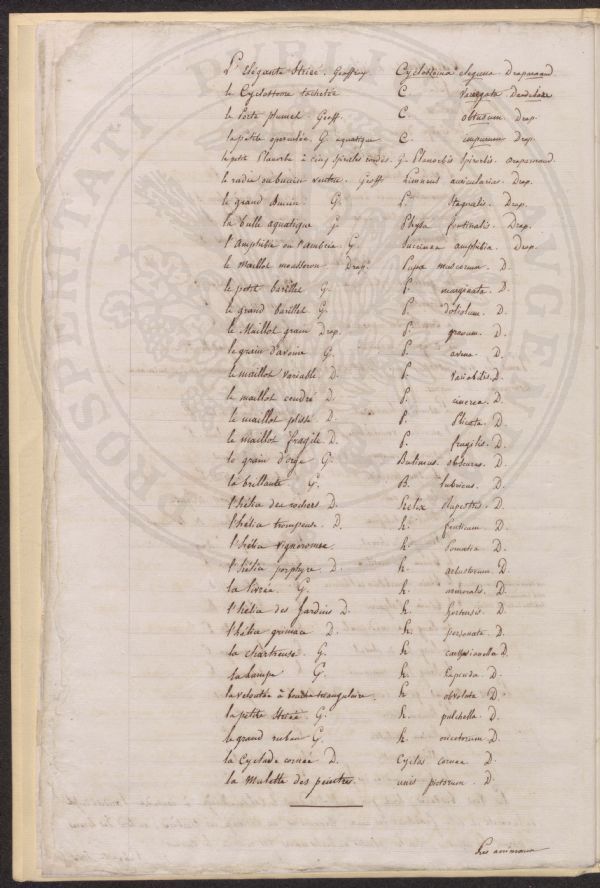 L'élégante striée. Geoffroy Cyclostoma elegans Draparnaud
le Cyclostome tachetée C. Draparnaud
le Porte plumet. Geoff. C. obtusum Drap.
la petite operculée. G. aquatique C. impurum Drap.
la petit Planorbe à cinq spirales rondes. G. Planorbis Spirorbis draparnaud.
le radix ou buccin ventru. Geoff Limneus auricularius. Drap.
le grand Buccin. G. L. Stagnalis. Drap.
la bulle aquatique G. Physa fontinalis. Drap.
l'amphibie ou l'ambrée. G. Succinea amphibia. Drap.
le Maillot mousseron Drap. Pupa muscorum D.
le petit barillet G. P. marginata D.
le grand barillet G. P. doliolum D.
le Maillot grain Drap. P. granum. D.
le grain d'avoine G. P. avena. D.
le maillot variable. D. P. variabilis. D.
le maillot cendré D. P. cinerea. D.
le maillot plissé D. P. Plicata. D.
le maillot fragile. D. P. fragilis. D.
le grain d'orge G. Bulimus. obscurus. D.
la brillante G. B. lubricus. D.
l'hélice des rochers D. helix Rupestris. D.
l'hélice trompeuse. D. h. fruticum. D.
l'hélice vigneronne. h. Pomatia D.
l'hélice porphyre. D. h. arbustorum D.
la livrée. G. h. nemoralis. D.
l'hélice des Jardins D. h. hortensis. D.
l'hélice grimace D. h. personata. D.
la chartreuse. G. h. carthusianella D.
la lampe G. h. Lapicida. D.
la veloutée à bouche triangulaire. h. obvoluta D.
la petite striée. G. h. pulchella. D.
le grand ruban G. h. ericetorum D.
la Cyclade cornée D. Cyclas cornea D.
la Mulette des peintres. unio pictorum. D.
Les animaux
PROSPERITATI PUBLICAE AUGENDAE